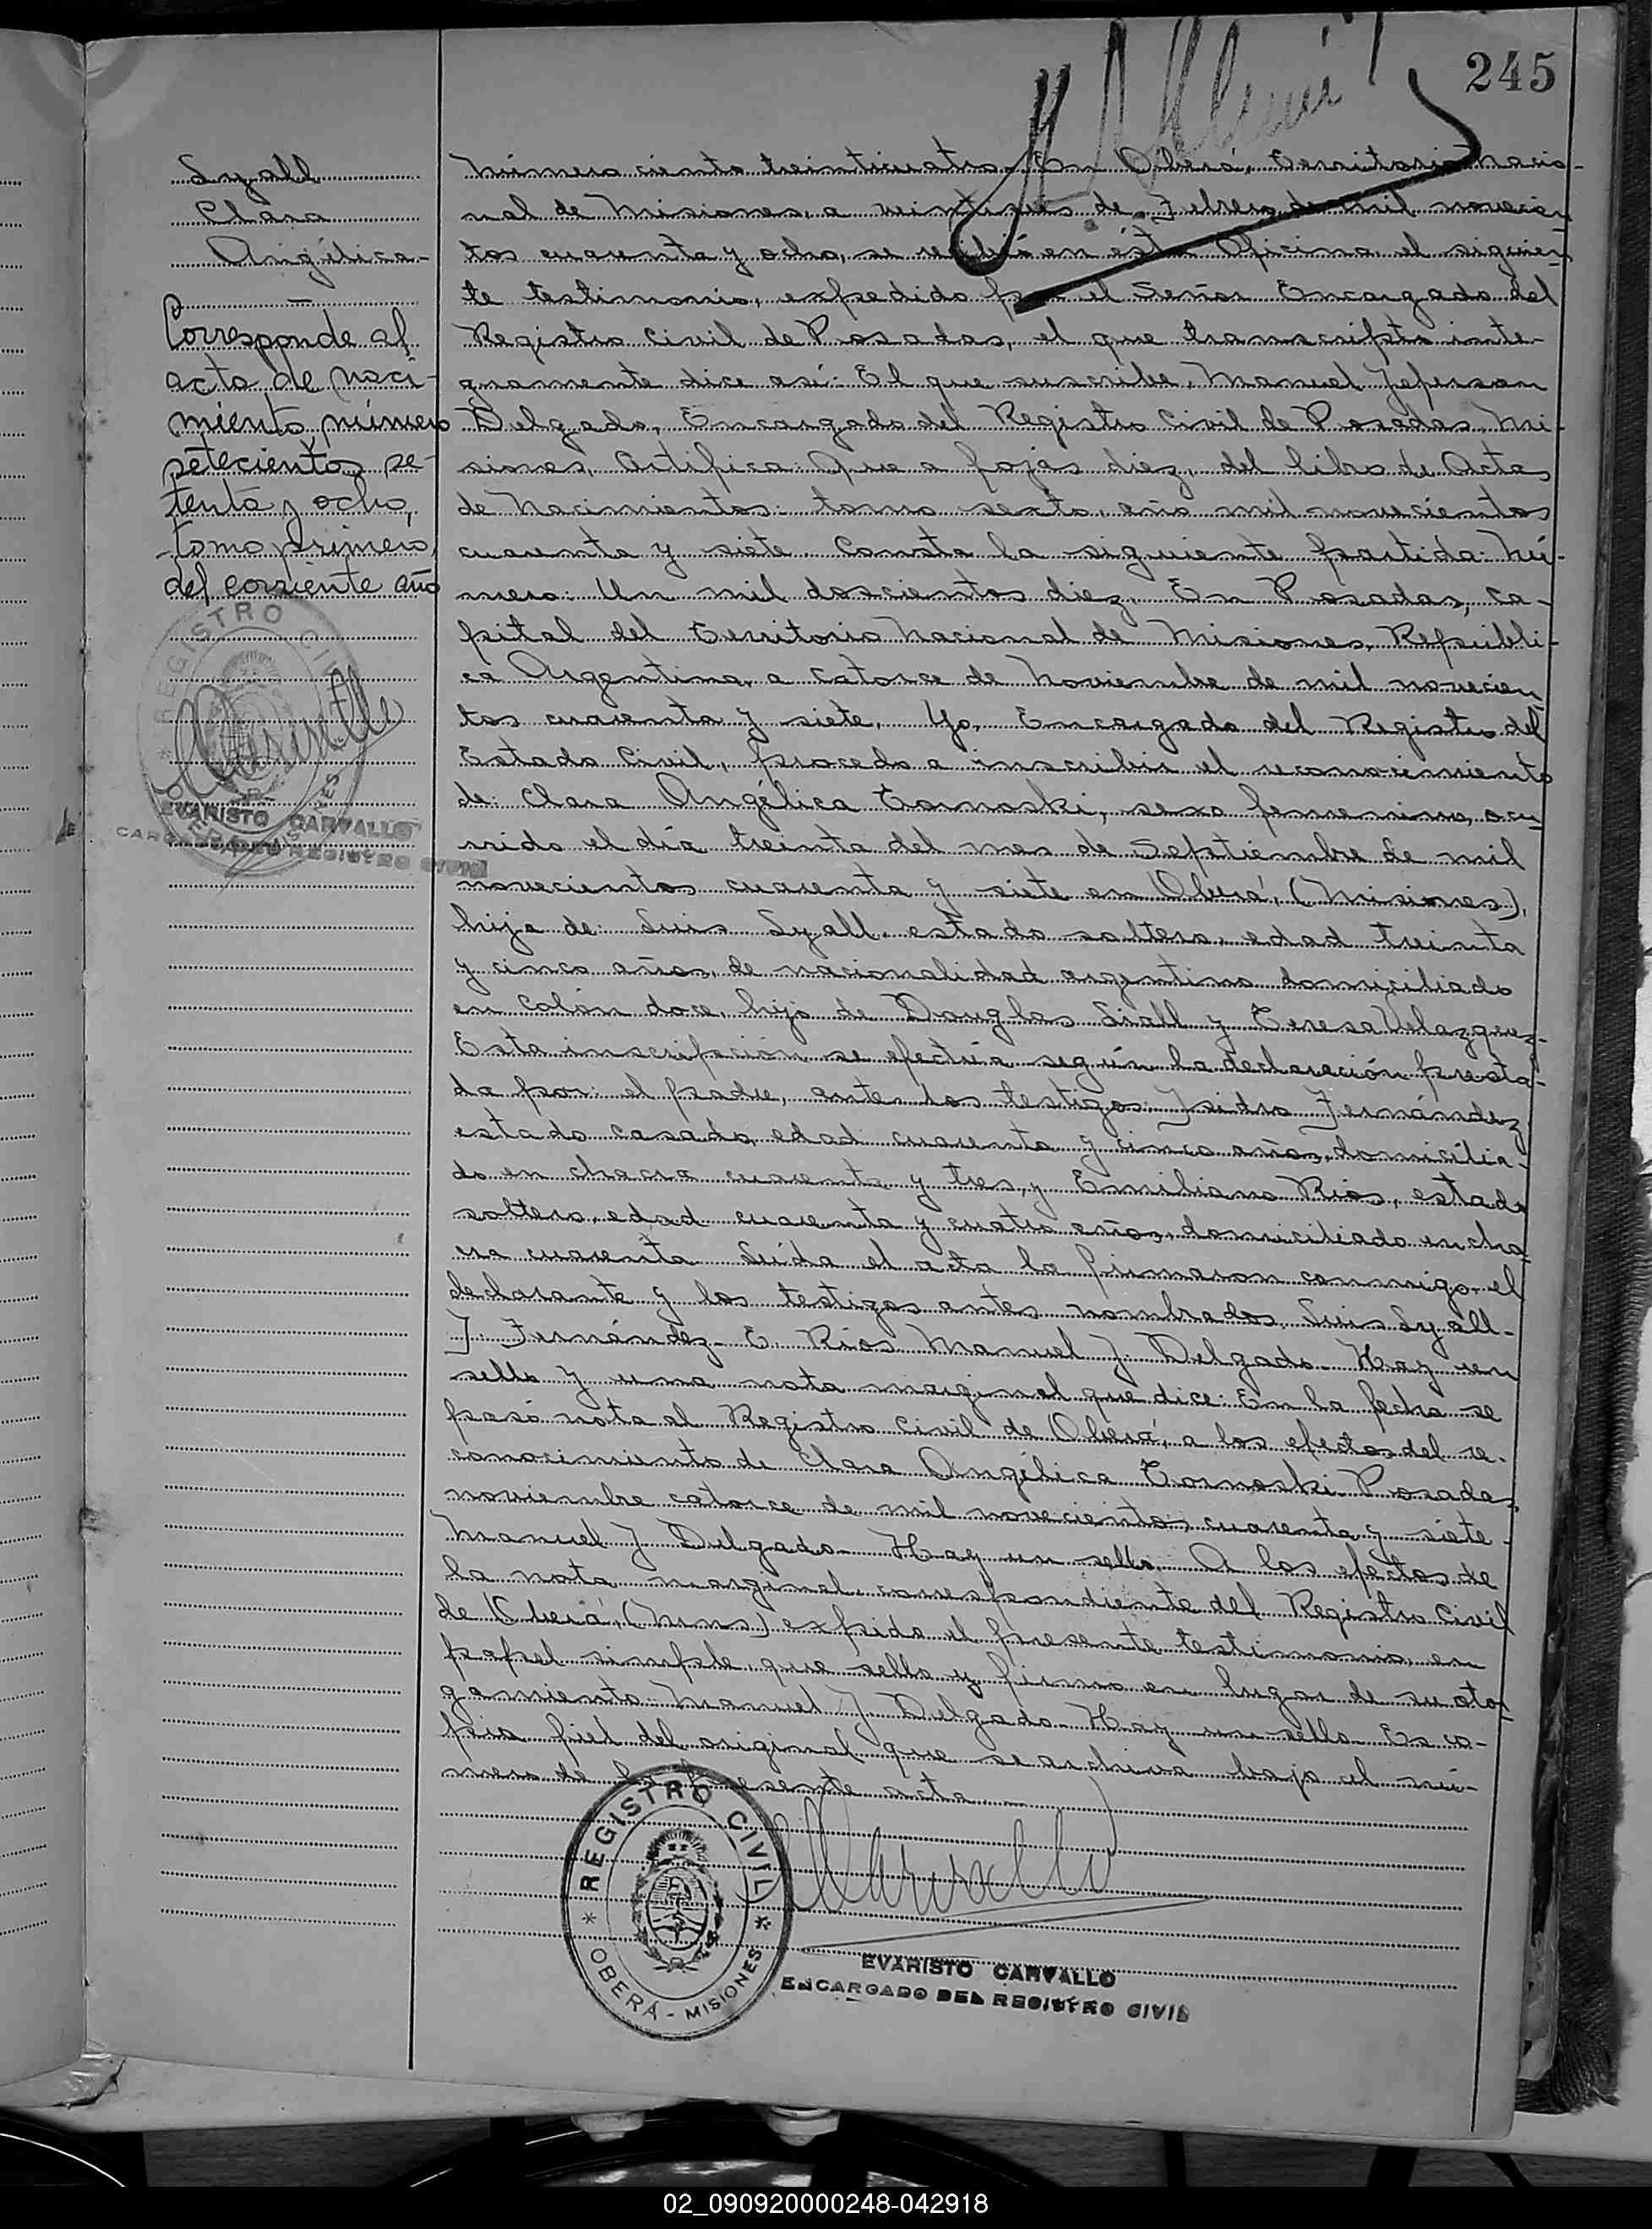 245
Lyall
Clara
Angélica-
Corresponde al
acta de naci-
miento número
setecientos se-
tenta y ocho,
tomo primero,
del corriente año
REGISTRO CIVIL
EVARISTO CARVALLO
ENCARGADO DEL REGISTRO CIVIL
Número ciento treinticuatro. En Oberá, Territorio Nacio-
nal de Misiones, a veintitrés de Febrero de mil novecien
tos cuarenta y ocho, se recibió en ésta Oficina el siguien-
te testimonio, expedido por el Señor Encargado del
Registro Civil de Posadas, el que transcripto inte-
gramente dice así: El que suscribe, Manuel Jeferson
Delgado, Encargado del Registro Civil de Posadas, Mi-
siones, Certifica: Que a fojas diez, del libro de Actas
de Nacimientos: tomo sexto, año mil novecientos
cuarenta y siete. Consta la siguiente partida: Nú-
mero: Un mil doscientos diez. En Posadas, ca-
pital del Territorio Nacional de Misiones, Repúbli-
ca Argentina, a catorce de Noviembre de mil novecien
tos cuarenta y siete. Yo, Encargado del Registro del
Estado Civil, procedo a inscribir el reconocimiento
de: Clara Angélica Tornoski, sexo femenino, ocu-
rrido el día treinta del mes de Septiembre de mil
novecientos cuarenta y siete en Oberá, (Misiones),
hija de: Luis Lyall, estado soltero, edad treinta
y cinco años, de nacionalidad argentino domiciliado
en Colón doce, hijo de Douglas Liall y Teresa Velazquez-
Esta inscripción se efectúa según la declaración presta-
da por: el padre, ante los testigos: Isidro Fernández,
estado casado, edad cuarenta y cinco años, domicilia-
do en chacra cuarenta y tres, y Emiliano Rios, estado
soltero, edad cuarenta y cuatro años, domiciliado en cha
cra cuarenta. Leída el acta la firmaron conmigo, el
declarante y los testigos antes nombrados. Luis Lyall-
I. Fernández- E. Rios Manuel J. Delgado- Hay un
sello y una nota marginal que dice: En la fecha se
pasó nota al Registro Civil de Oberá, a los efectos del re-
conocimiento de Clara Angélica Tornoski- Posadas,
noviembre catorce de mil novecientos cuarenta y siete-
Manuel J Delgado- Hay un sello. A los efectos de
la nota marginal correspondiente del Registro Civil
de Oberá, (Mnes) expido el presente testimonio, en
papel simple, que sello y firmo en lugar de su otor
gamiento- Manuel J Delgado- Hay un sello- Es co-
pia fiel del original que se archiva bajo el nú-
mero de la presente acta.-
Carvallo
REGISTRO CIVIL
OBERÁ - MISIONES
EVARISTO CARVALLO
ENCARGADO DEL REGISTRO CIVIL
02_090920000248-042918